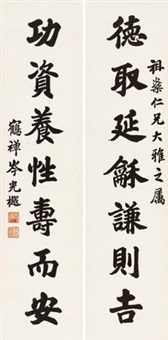 祖燊仁兄大雅之屬
德取延龢謙則吉
功資養性壽而安
鶴禅岑光樾